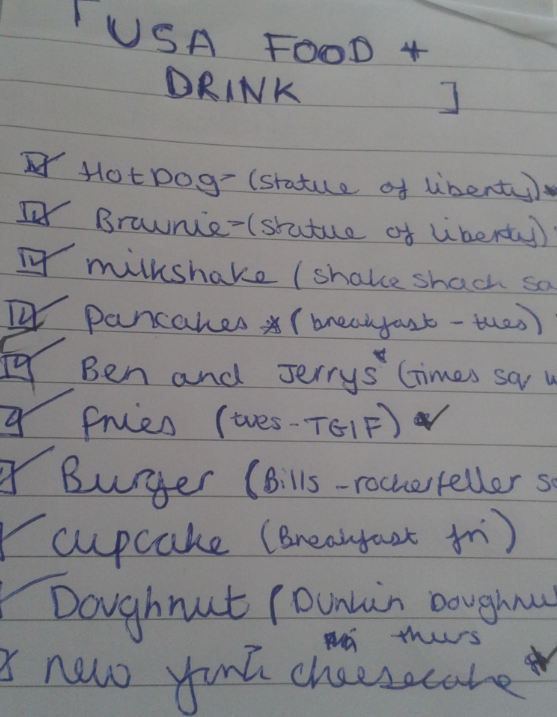 [ USA FOOD +
DRINK ]
Hot Dog - (Statue of liberty)
Brownie - (Statue of liberty)
milkshake (shake shach sa
Pancakes * (breakfast - tues)
Ben and Jerrys * (Times sq w
fries (tues - TGIF)
Burger (Bills - rockerfeller s
cupcake (Breakfast fri)
Doughnut (Dunkin Doughnu
thurs
new york cheesecake